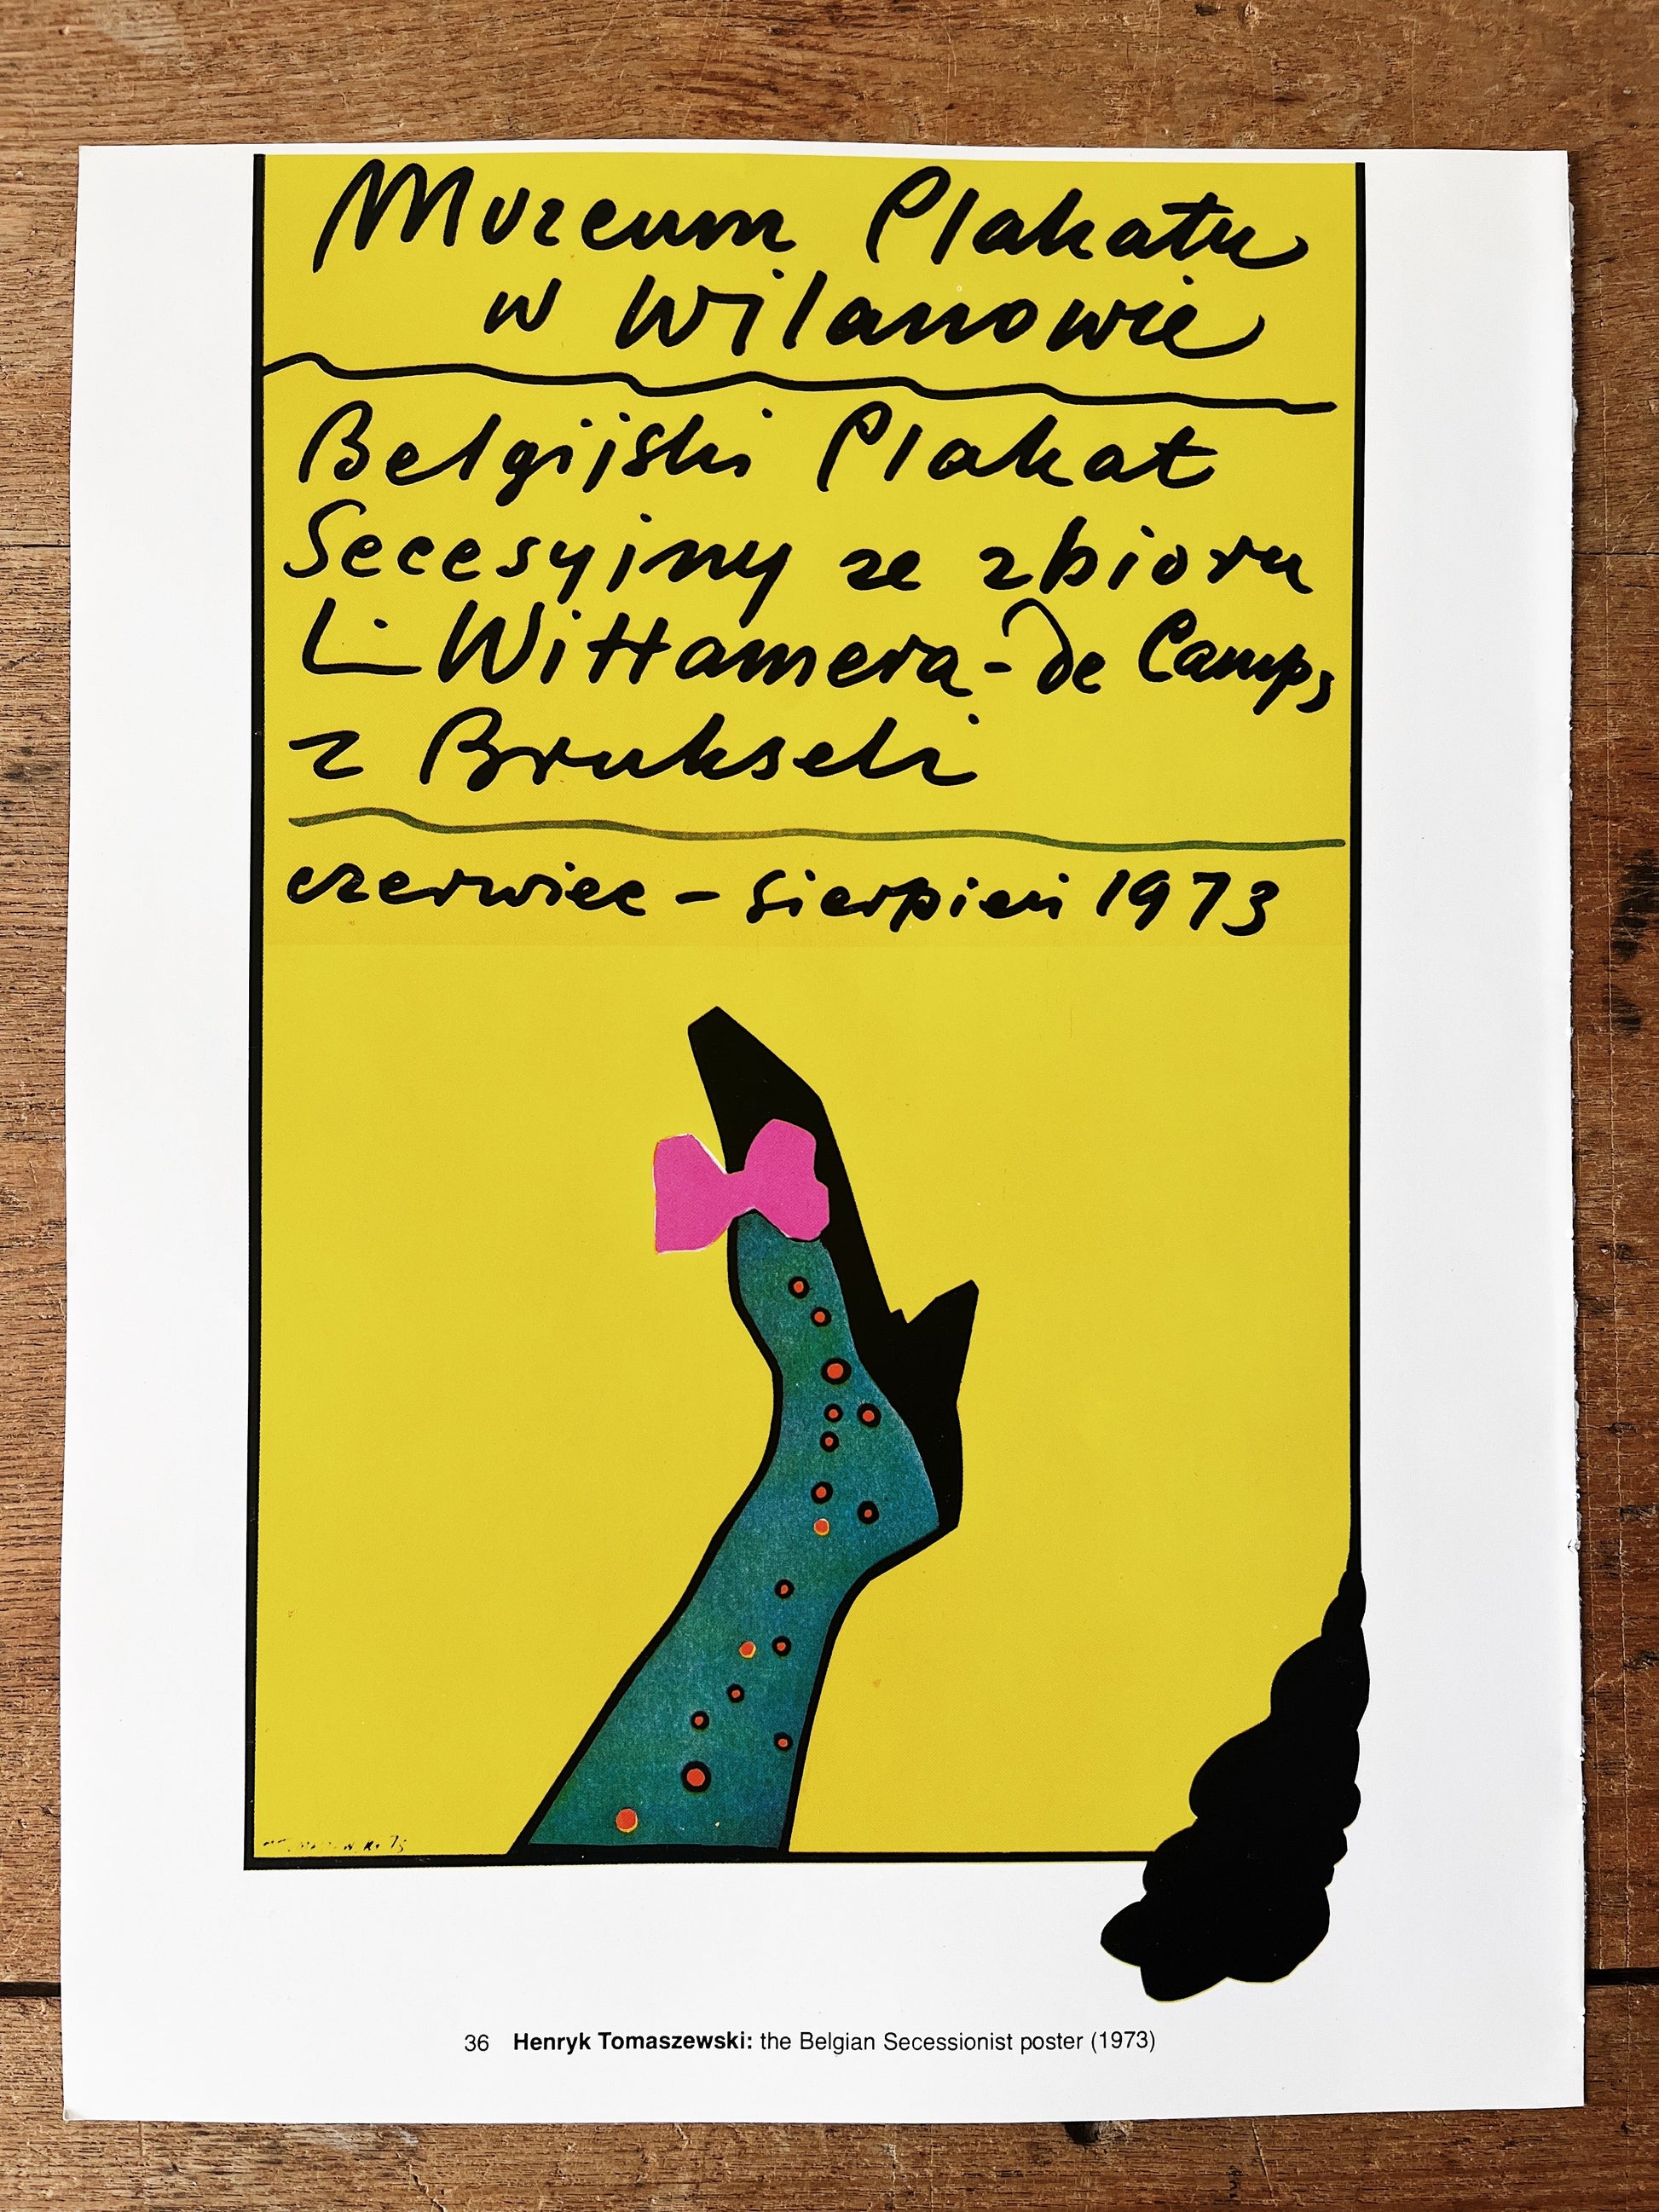 Muzeum Plakatu
w Wilanowie
Belgijski Plakat
Secesyjny ze zbioru
L. Wittamera-de Camps
z Brukseli
czerwiec – sierpień 1973
36 Henryk Tomaszewski: the Belgian Secessionist poster (1973)